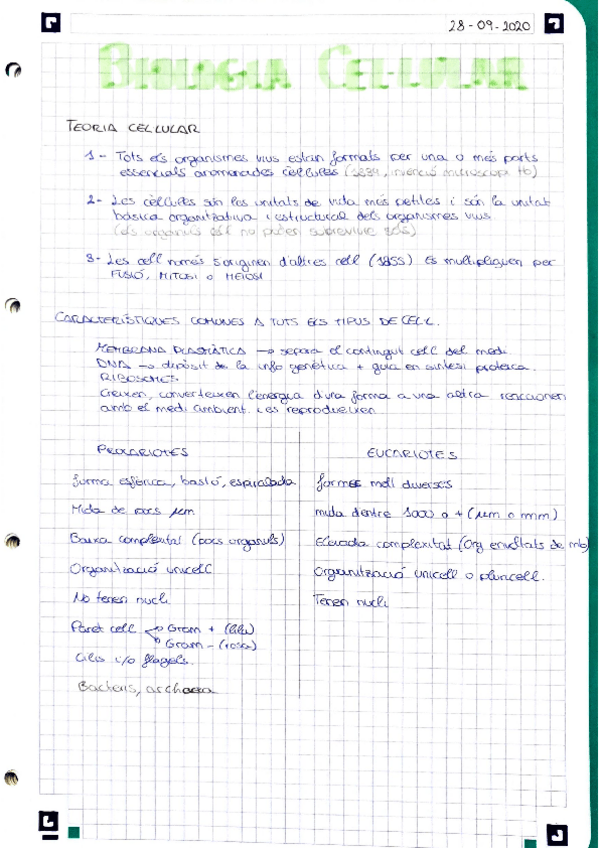 28-09-2020
BIOLOGIA CEL·LULAR
TEORIA CEL·LULAR
1- Tots els organismes vius estan formats per una o més parts
essencials anomenades cèl·lules (1839, invenció microscopi tb)
2- Les cèl·lules són les unitats de vida més petites i són la unitat
bàsica organitzativa i estructural dels organismes vius
(els orgànuls cell no poden sobreviure sols)
3- Les cell només s'originen d'altres cell (1855) Es multipliquen per
FUSIÓ, MITOSI o MEIOSI
CARACTERÍSTIQUES COMUNES A TOTS ELS TIPUS DE CELL.
MEMBRANA PLASMÀTICA → separa el contingut cell del medi
DNA → dipòsit de la info genètica + guia en síntesi proteica.
RIBOSOMES.
Creixen, converteixen l'energia d'una forma a una altra reaccionen
amb el medi ambient i es reprodueixen
PROCARIOTES
EUCARIOTES
forma esfèrica, bastó, espiralada
formes molt diverses
Mida de pocs µm
mida dentre 1000 o + (µm o mm)
Baixa complexitat (pocs orgànuls)
Elevada complexitat (Org envoltats de mb)
Organització unicell
Organització unicell o pluricell.
No tenen nucli
Tenen nucli
Paret cell → Gram + (lila)
→ Gram - (rosa)
Cilis i/o flagels.
Bacteris, archaea